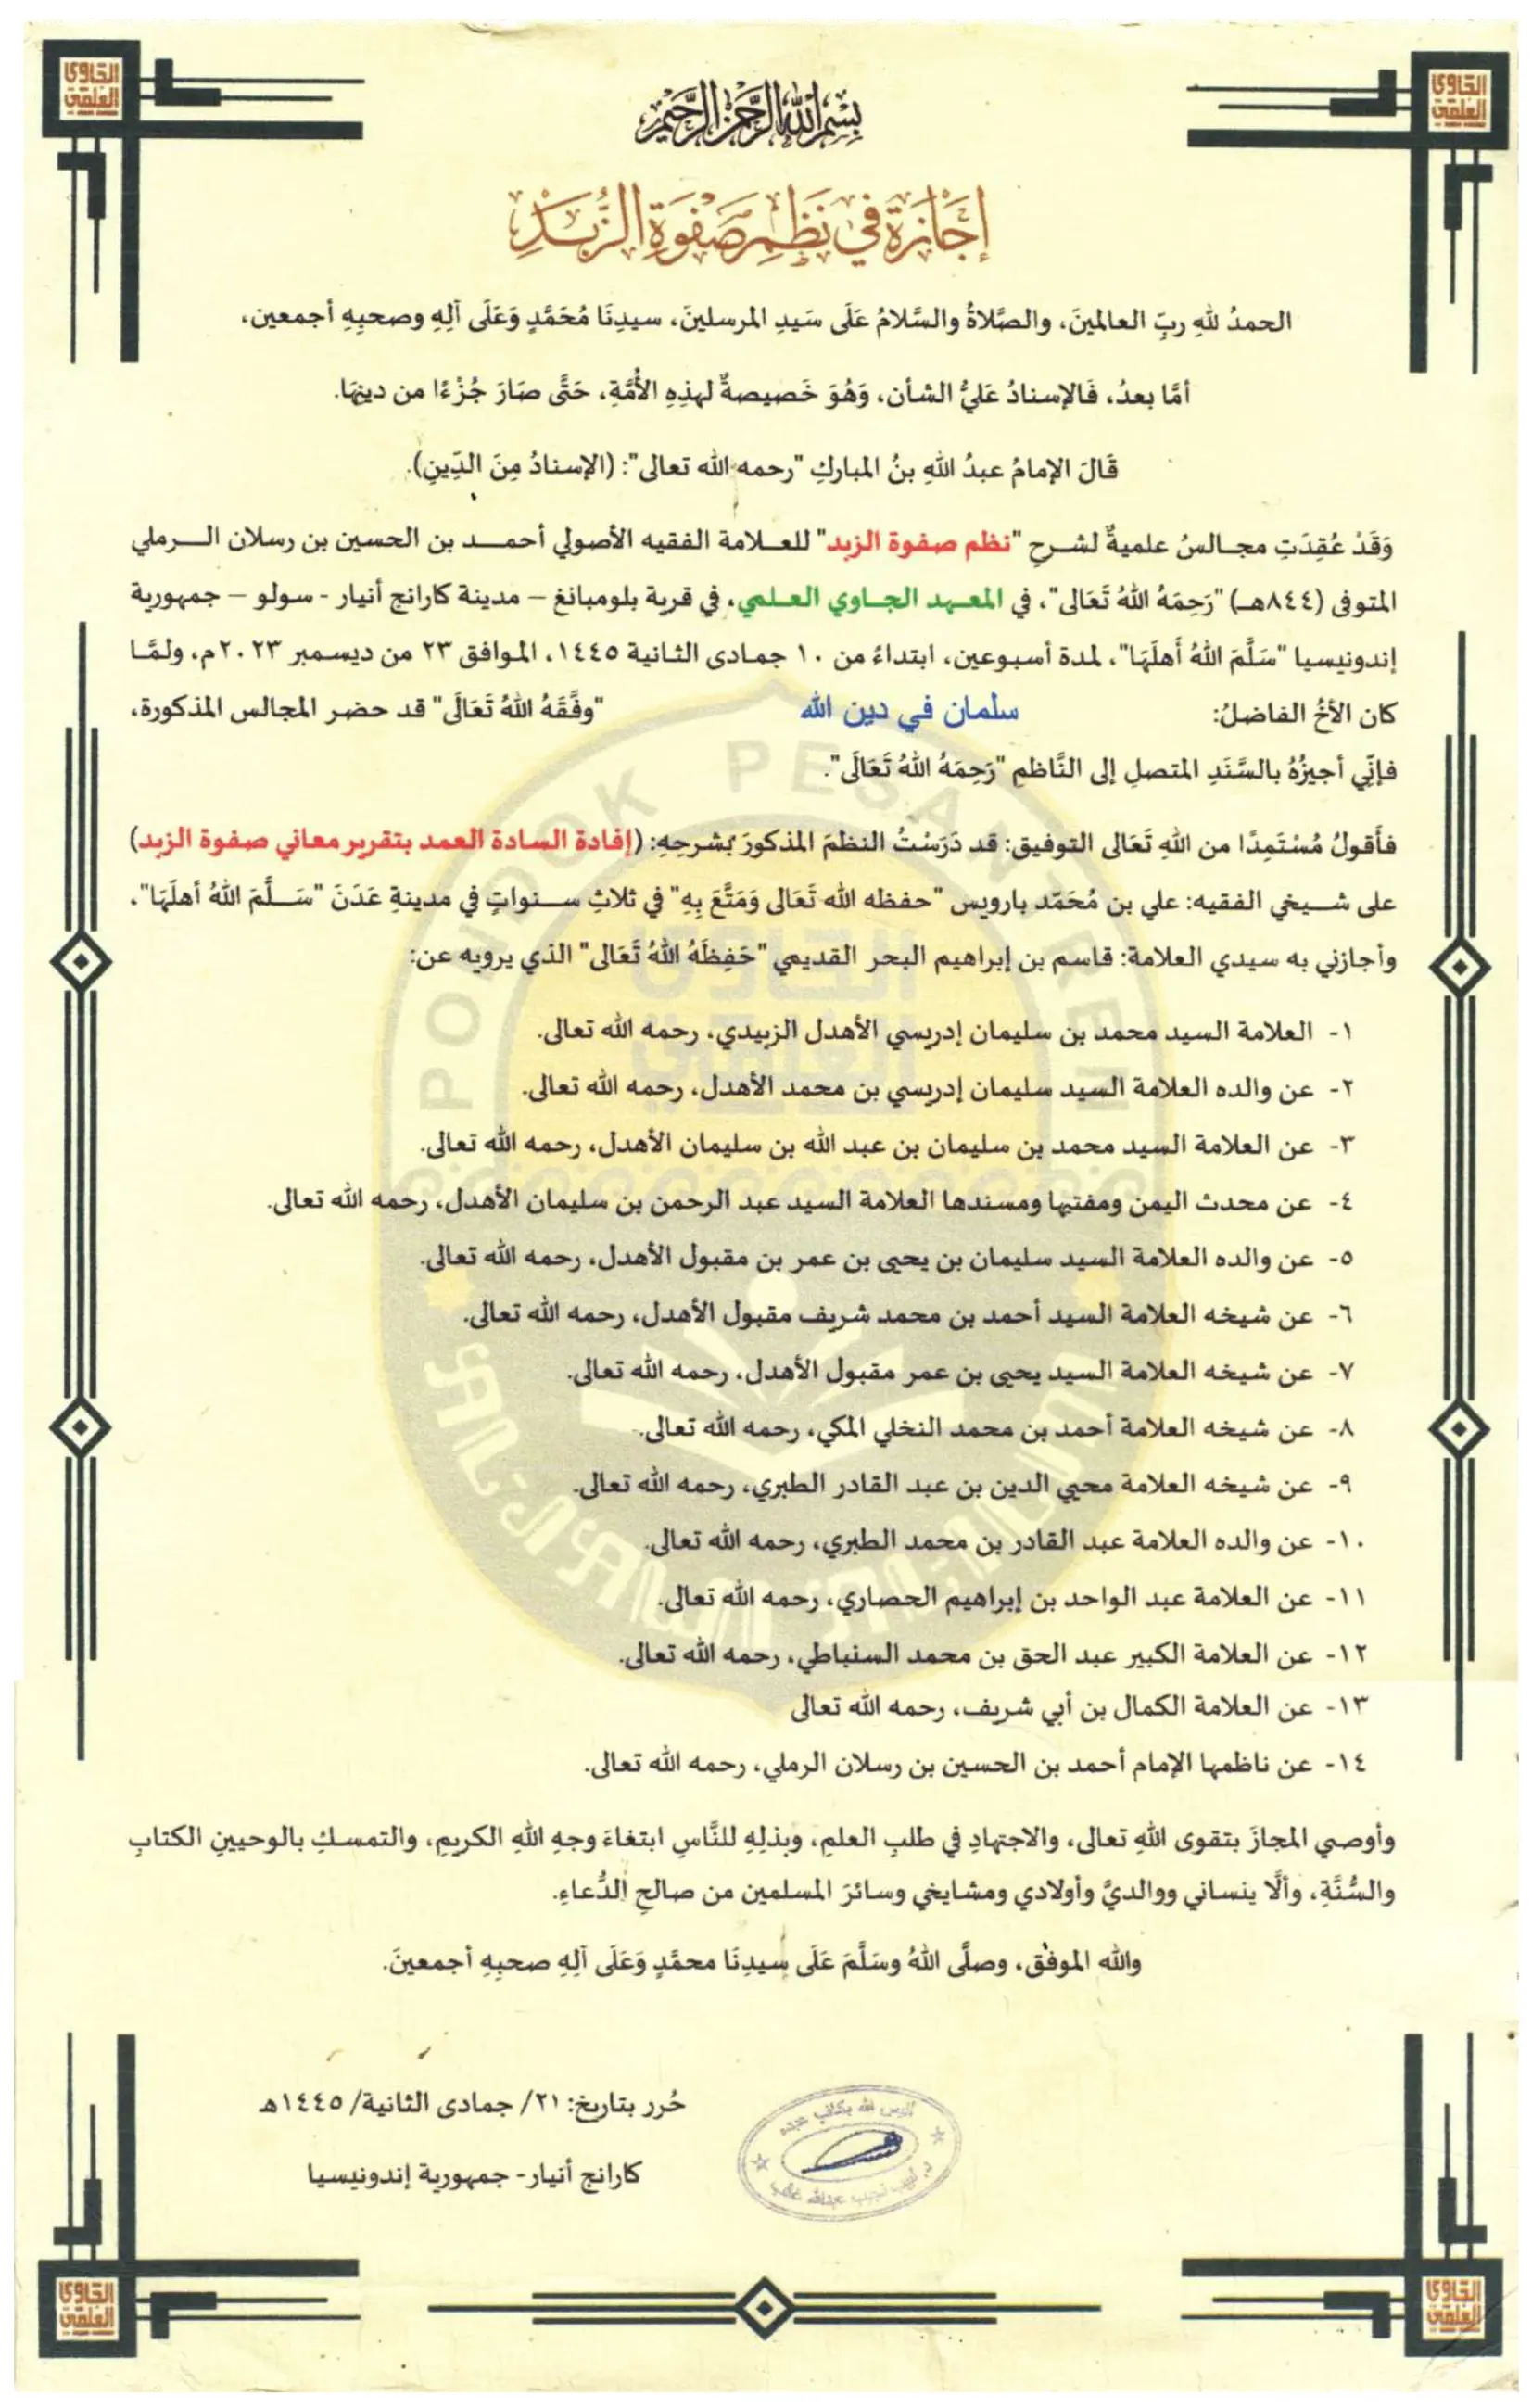 الحاوي العلمي
الحاوي العلمي
بسم الله الرحمن الرحيم
إِجَازَةٌ فِي نَظْمِ صَفْوَةِ الزُّبَدِ
الحمدُ للهِ ربِّ العالمينَ، والصَّلاةُ والسَّلامُ عَلَى سَيدِ المرسلينَ، سيدِنَا مُحَمَّدٍ وَعَلَى آلِهِ وصحبِهِ أجمعين،
أمَّا بعدُ، فَالإسنادُ عَليُّ الشأن، وَهُوَ خَصيصةٌ لهذِهِ الأُمَّةِ، حَتَّى صَارَ جُزْءًا من دينِهَا.
قَالَ الإمامُ عبدُ اللهِ بنُ المباركِ "رحمه الله تعالى": (الإسنادُ مِنَ الدِّينِ).
وَقَدْ عُقِدَتِ مجالسُ علميةٌ لشرحِ "نظم صفوة الزبد" للعلامة الفقيه الأصولي أحمد بن الحسين بن رسلان الرملي
المتوفى (٨٤٤هـ) "رَحِمَهُ اللهُ تَعَالى"، في المعهد الحاوي العلمي، في قرية بلومبانغ – مدينة كارانج أنيار - سولو – جمهورية
إندونيسيا "سَلَّمَ اللهُ أَهلَهَا"، لمدة أسبوعين، ابتداءً من ١٠ جمادى الثانية ١٤٤٥، الموافق ٢٣ من ديسمبر ٢٠٢٣م، ولمَّا
كان الأخُ الفاضلُ: سلمان في دين الله "وفَّقَهُ اللهُ تَعَالَى" قد حضر المجالس المذكورة،
فإنِّي أجيزُهُ بالسَّنَدِ المتصلِ إلى النَّاظمِ "رَحِمَهُ اللهُ تَعَالَى".
فأَقولُ مُسْتَمِدًا من اللهِ تَعَالى التوفيق: قد دَرَسْتُ النظمَ المذكورَ بشرحِهِ: (إفادة السادة العمد بتقرير معاني صفوة الزبد)
على شيخي الفقيه: علي بن مُحَمّد بارويس "حفظه الله تَعَالى وَمَتَّعَ بِهِ" في ثلاثِ سنواتٍ في مدينةِ عَدَنَ "سَلَّمَ اللهُ أهلَهَا"،
وأجازني به سيدي العلامة: قاسم بن إبراهيم البحر القديمي "حَفِظَهُ اللهُ تَعَالى" الذي يرويه عن:
١- العلامة السيد محمد بن سليمان إدريسي الأهدل الزبيدي، رحمه الله تعالى.
٢- عن والده العلامة السيد سليمان إدريسي بن محمد الأهدل، رحمه الله تعالى.
٣- عن العلامة السيد محمد بن سليمان بن عبد الله بن سليمان الأهدل، رحمه الله تعالى.
٤- عن محدث اليمن ومفتيها ومسندها العلامة السيد عبد الرحمن بن سليمان الأهدل، رحمه الله تعالى.
٥- عن والده العلامة السيد سليمان بن يحيى بن عمر بن مقبول الأهدل، رحمه الله تعالى.
٦- عن شيخه العلامة السيد أحمد بن محمد شريف مقبول الأهدل، رحمه الله تعالى.
٧- عن شيخه العلامة السيد يحيى بن عمر مقبول الأهدل، رحمه الله تعالى.
٨- عن شيخه العلامة أحمد بن محمد النخلي المكي، رحمه الله تعالى.
٩- عن شيخه العلامة محيي الدين بن عبد القادر الطبري، رحمه الله تعالى.
١٠- عن والده العلامة عبد القادر بن محمد الطبري، رحمه الله تعالى.
١١- عن العلامة عبد الواحد بن إبراهيم الحصاري، رحمه الله تعالى.
١٢- عن العلامة الكبير عبد الحق بن محمد السنباطي، رحمه الله تعالى.
١٣- عن العلامة الكمال بن أبي شريف، رحمه الله تعالى
١٤- عن ناظمها الإمام أحمد بن الحسين بن رسلان الرملي، رحمه الله تعالى.
وأوصي المجازَ بتقوى اللهِ تعالى، والاجتهادِ في طلبِ العلمِ، وبذلِهِ للنَّاسِ ابتغاءَ وجهِ اللهِ الكريمِ، والتمسكِ بالوحيينِ الكتابِ
والسُّنَّةِ، وألَّا ينساني ووالديَّ وأولادي ومشايخي وسائرَ المسلمين من صالحِ الدُّعاءِ.
والله الموفق، وصلَّى اللهُ وسَلَّمَ عَلَى سيدِنَا محمَّدٍ وَعَلَى آلِهِ صحبِهِ أجمعينَ.
حُرر بتاريخ: ٢١/ جمادى الثانية/ ١٤٤٥هـ
كارانج أنيار- جمهورية إندونيسيا
أليس الله بكاف عبده
د. لبيب نجيب عبدالله غالب
PONDOK PESANTREN
الحاوي العلمي
الحاوي العلمي